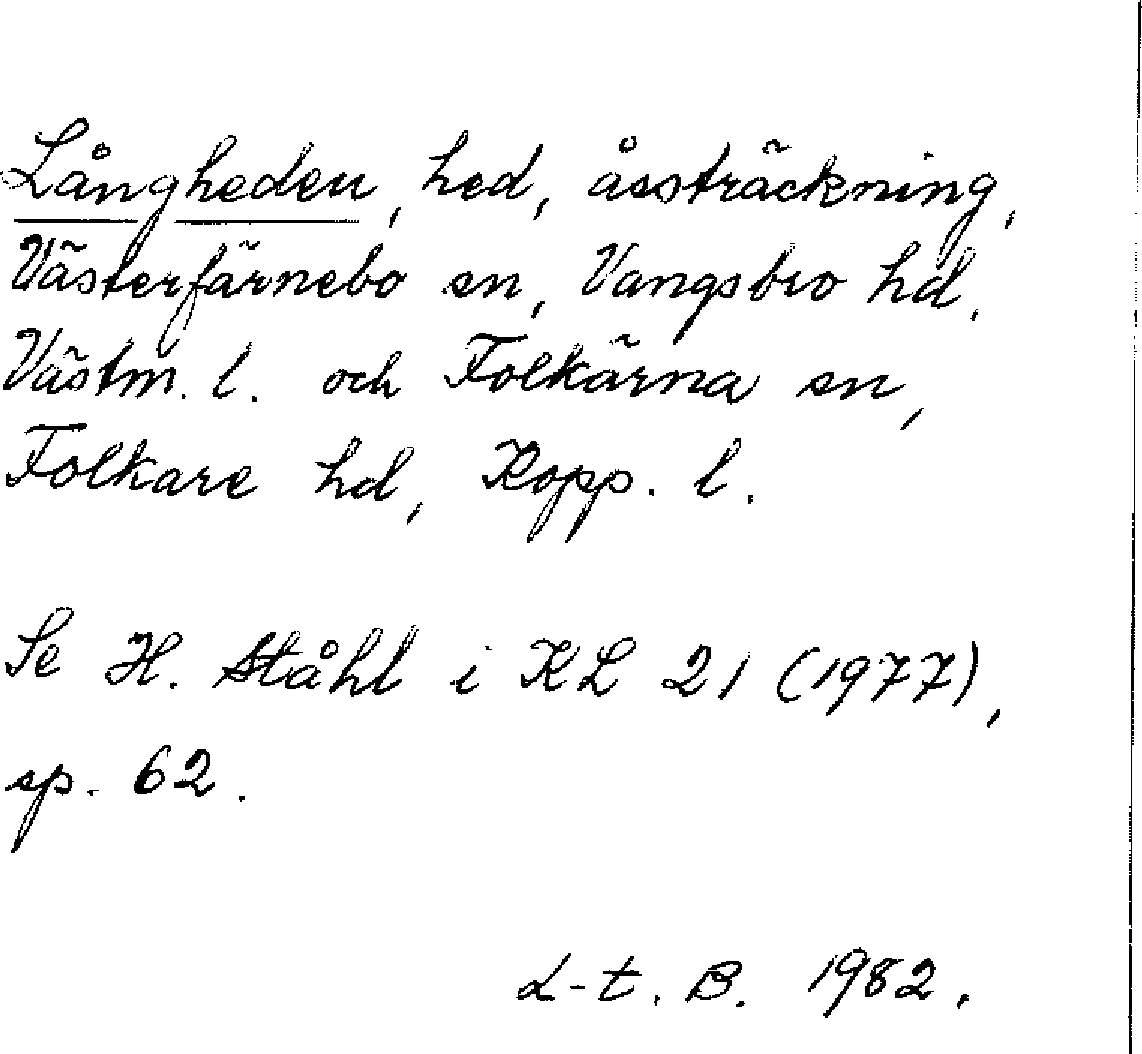 Långheden, hed, åssträckning,
Västerfärnebo sn, Vangsbro hd,
Västm. l. och Folkärna sn,
Folkare hd, Kopp. l.
Se H. Ståhl i KL 21 (1977),
sp. 62.
L-t. B. 1982.